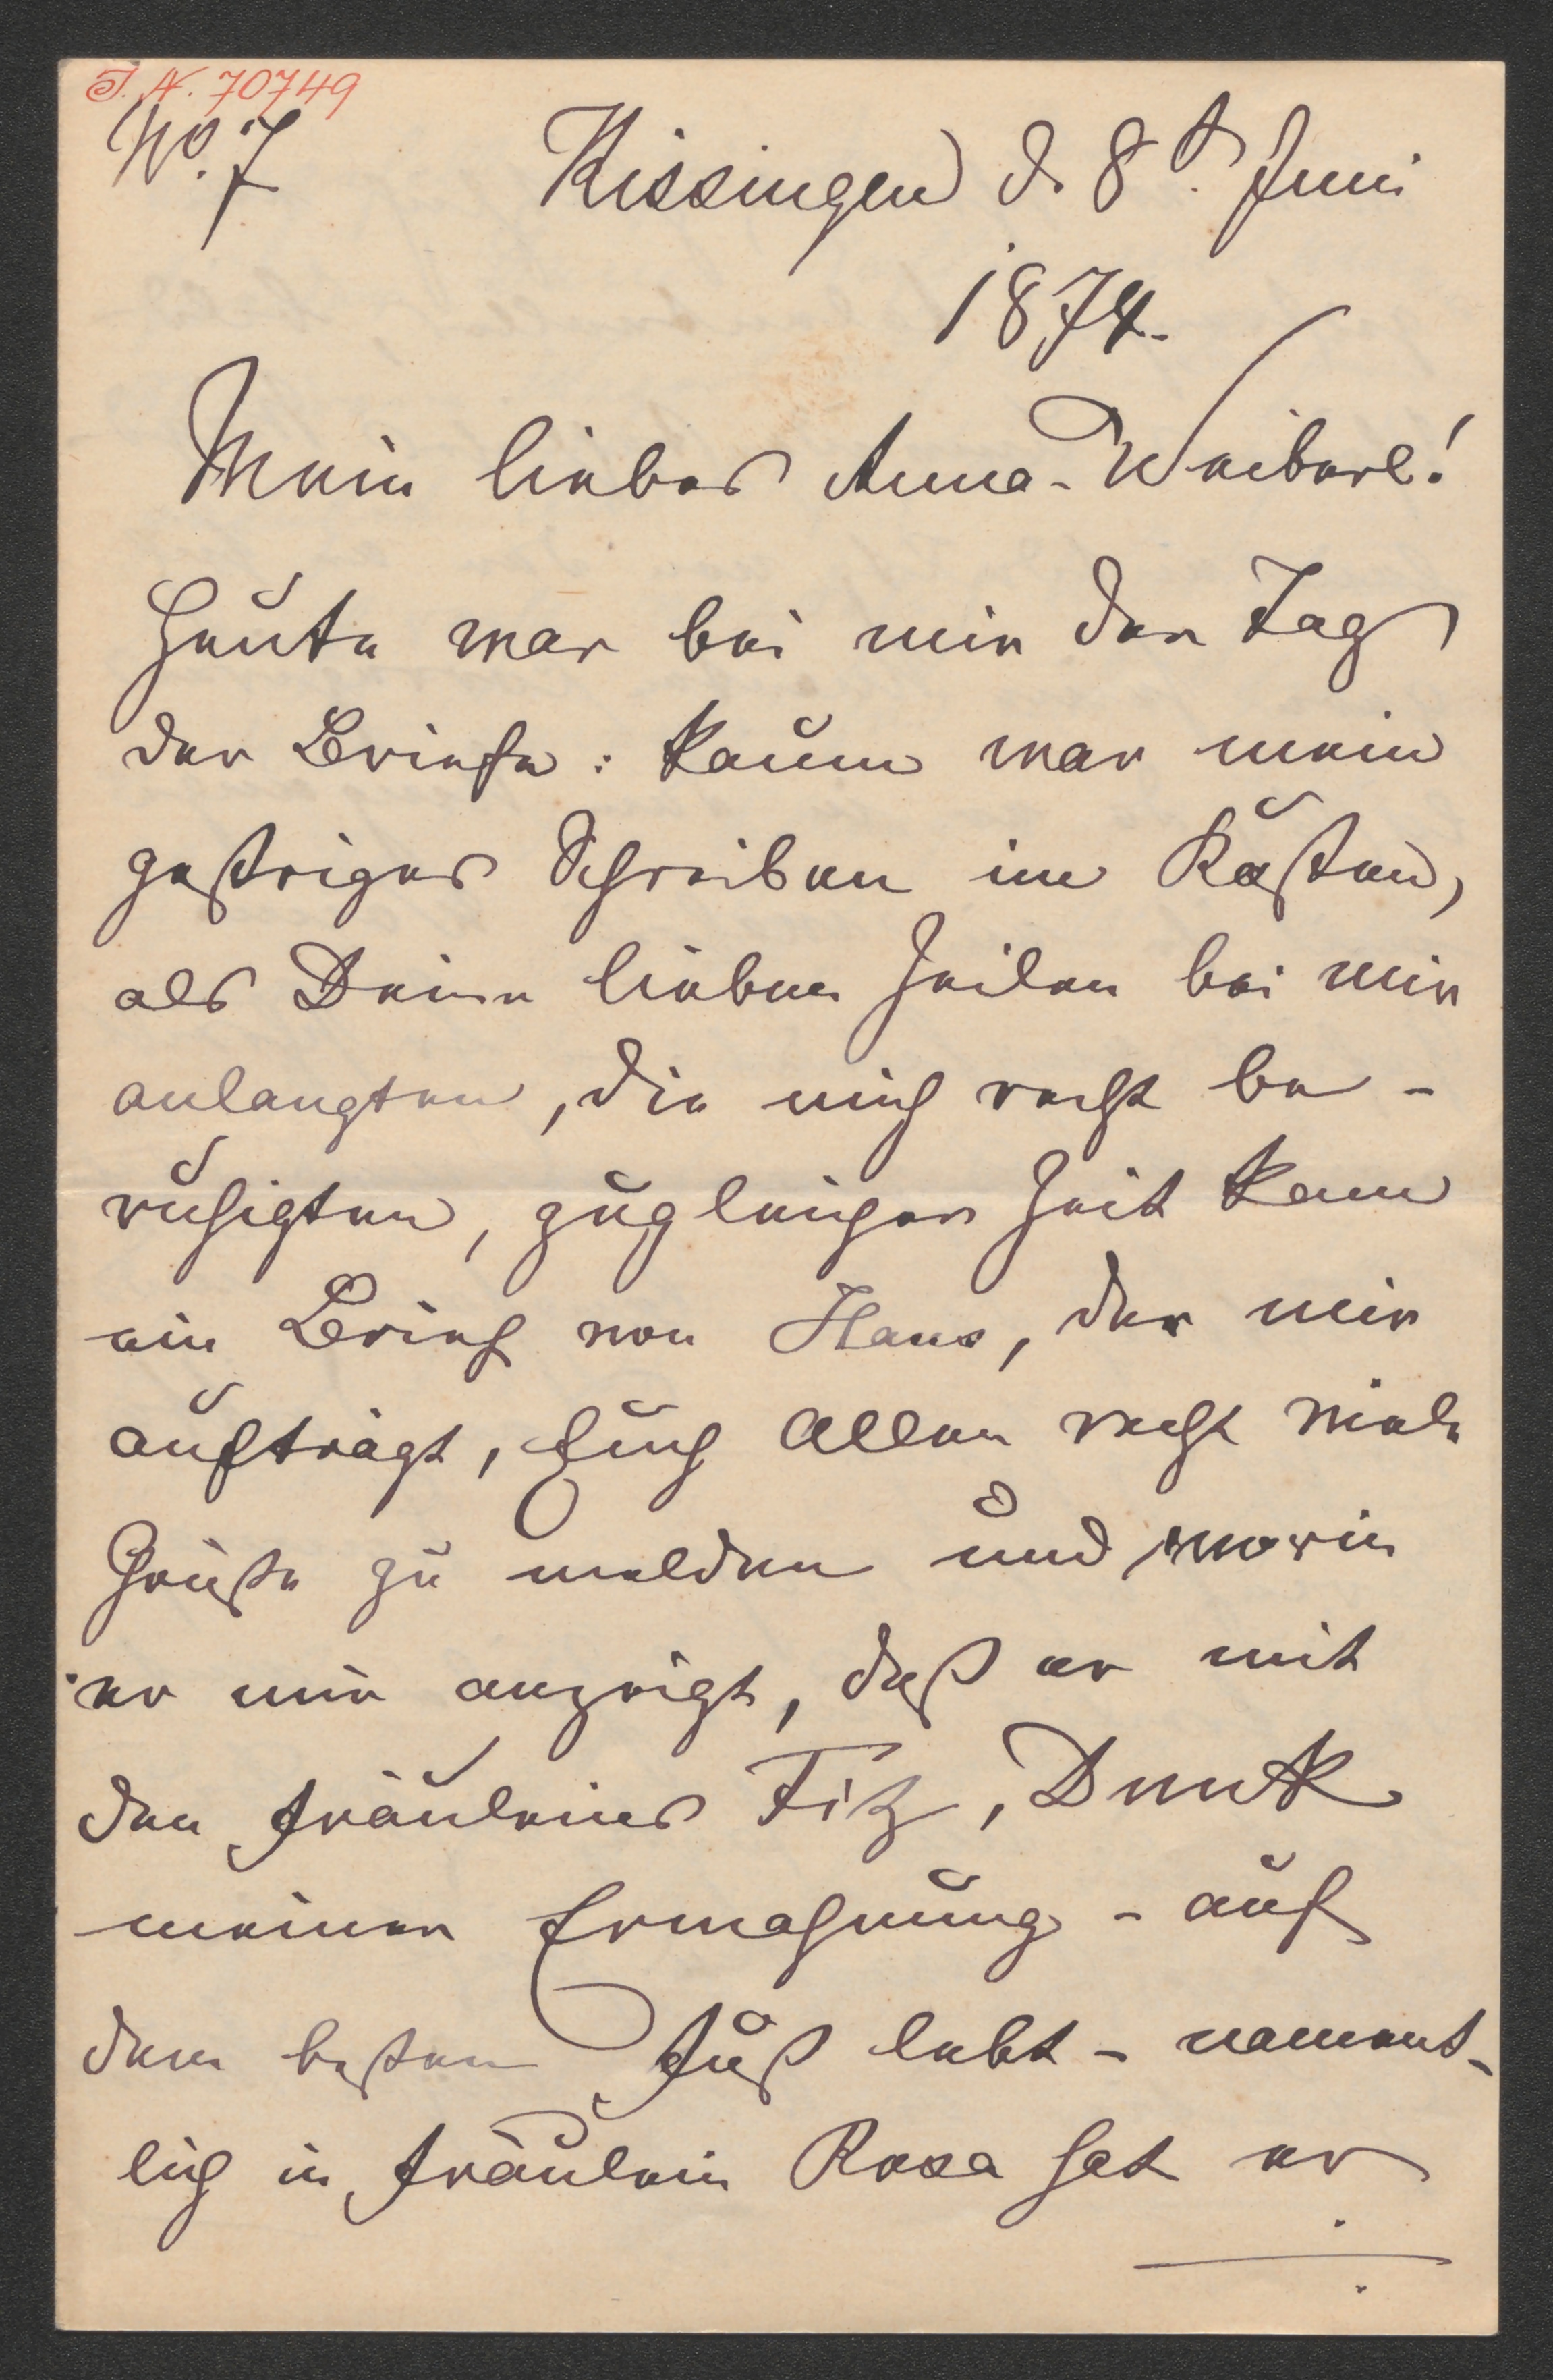 I. N. 70749
No. 7 Kissingen d. 8t. Juni
1874.
Mein liebes Anna-Weiberl!
Heute war bei mir der Tag
der Briefe: kaum war mein
gestriges Schreiben im Kasten,
als Deine lieben Zeilen bei mir
anlangten, die mich recht be-
ruhigten, zugleicher Zeit kam
ein Brief von Hans, der mir
aufträgt, Euch Allen recht viele
Grüße zu melden und worin
er mir anzeigt, daß er mit
den Fräuleins Fitz, Dank
meiner Ermahnung - auf
dem besten Fuß lebt - nament-
lich in Fräulein Rosa hat er